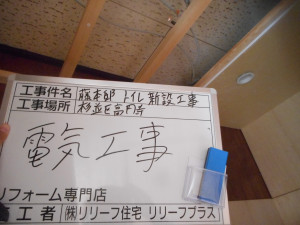 工事件名 藤本邸 トイレ新設工事
工事場所 杉並区高円寺
電気工事
リフォーム専門店
工者 ㈱リリーフ住宅 リリーフプラス